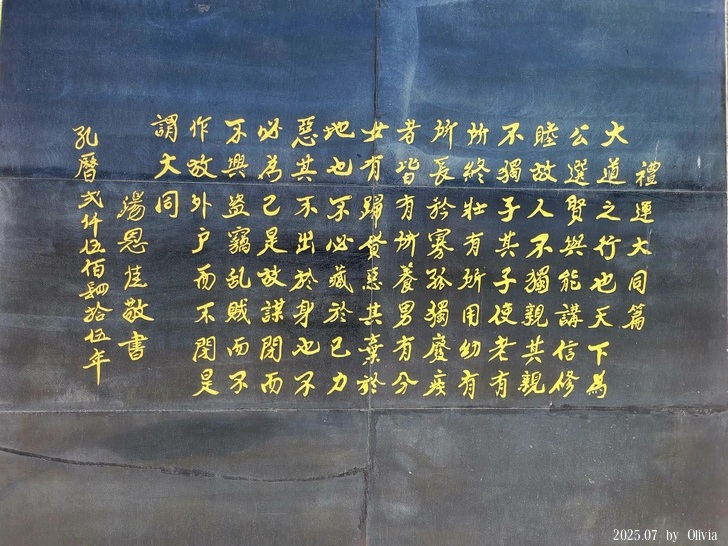 禮運大同篇
大道之行也天下為
公選賢與能講信修
睦故人不獨親其親
不獨子其子使老有
所終壯有所用幼有
所長矜寡孤獨廢疾
者皆有所養男有分
女有歸貨惡其棄於
地也不必藏於己力
惡其不出於身也不
必為己是故謀閉而
不興盜竊乱賊而不
作故外户而不閉是
謂大同
湯恩佳敬書
孔曆弍仟伍佰肆拾伍年
2025.07 by Olivia